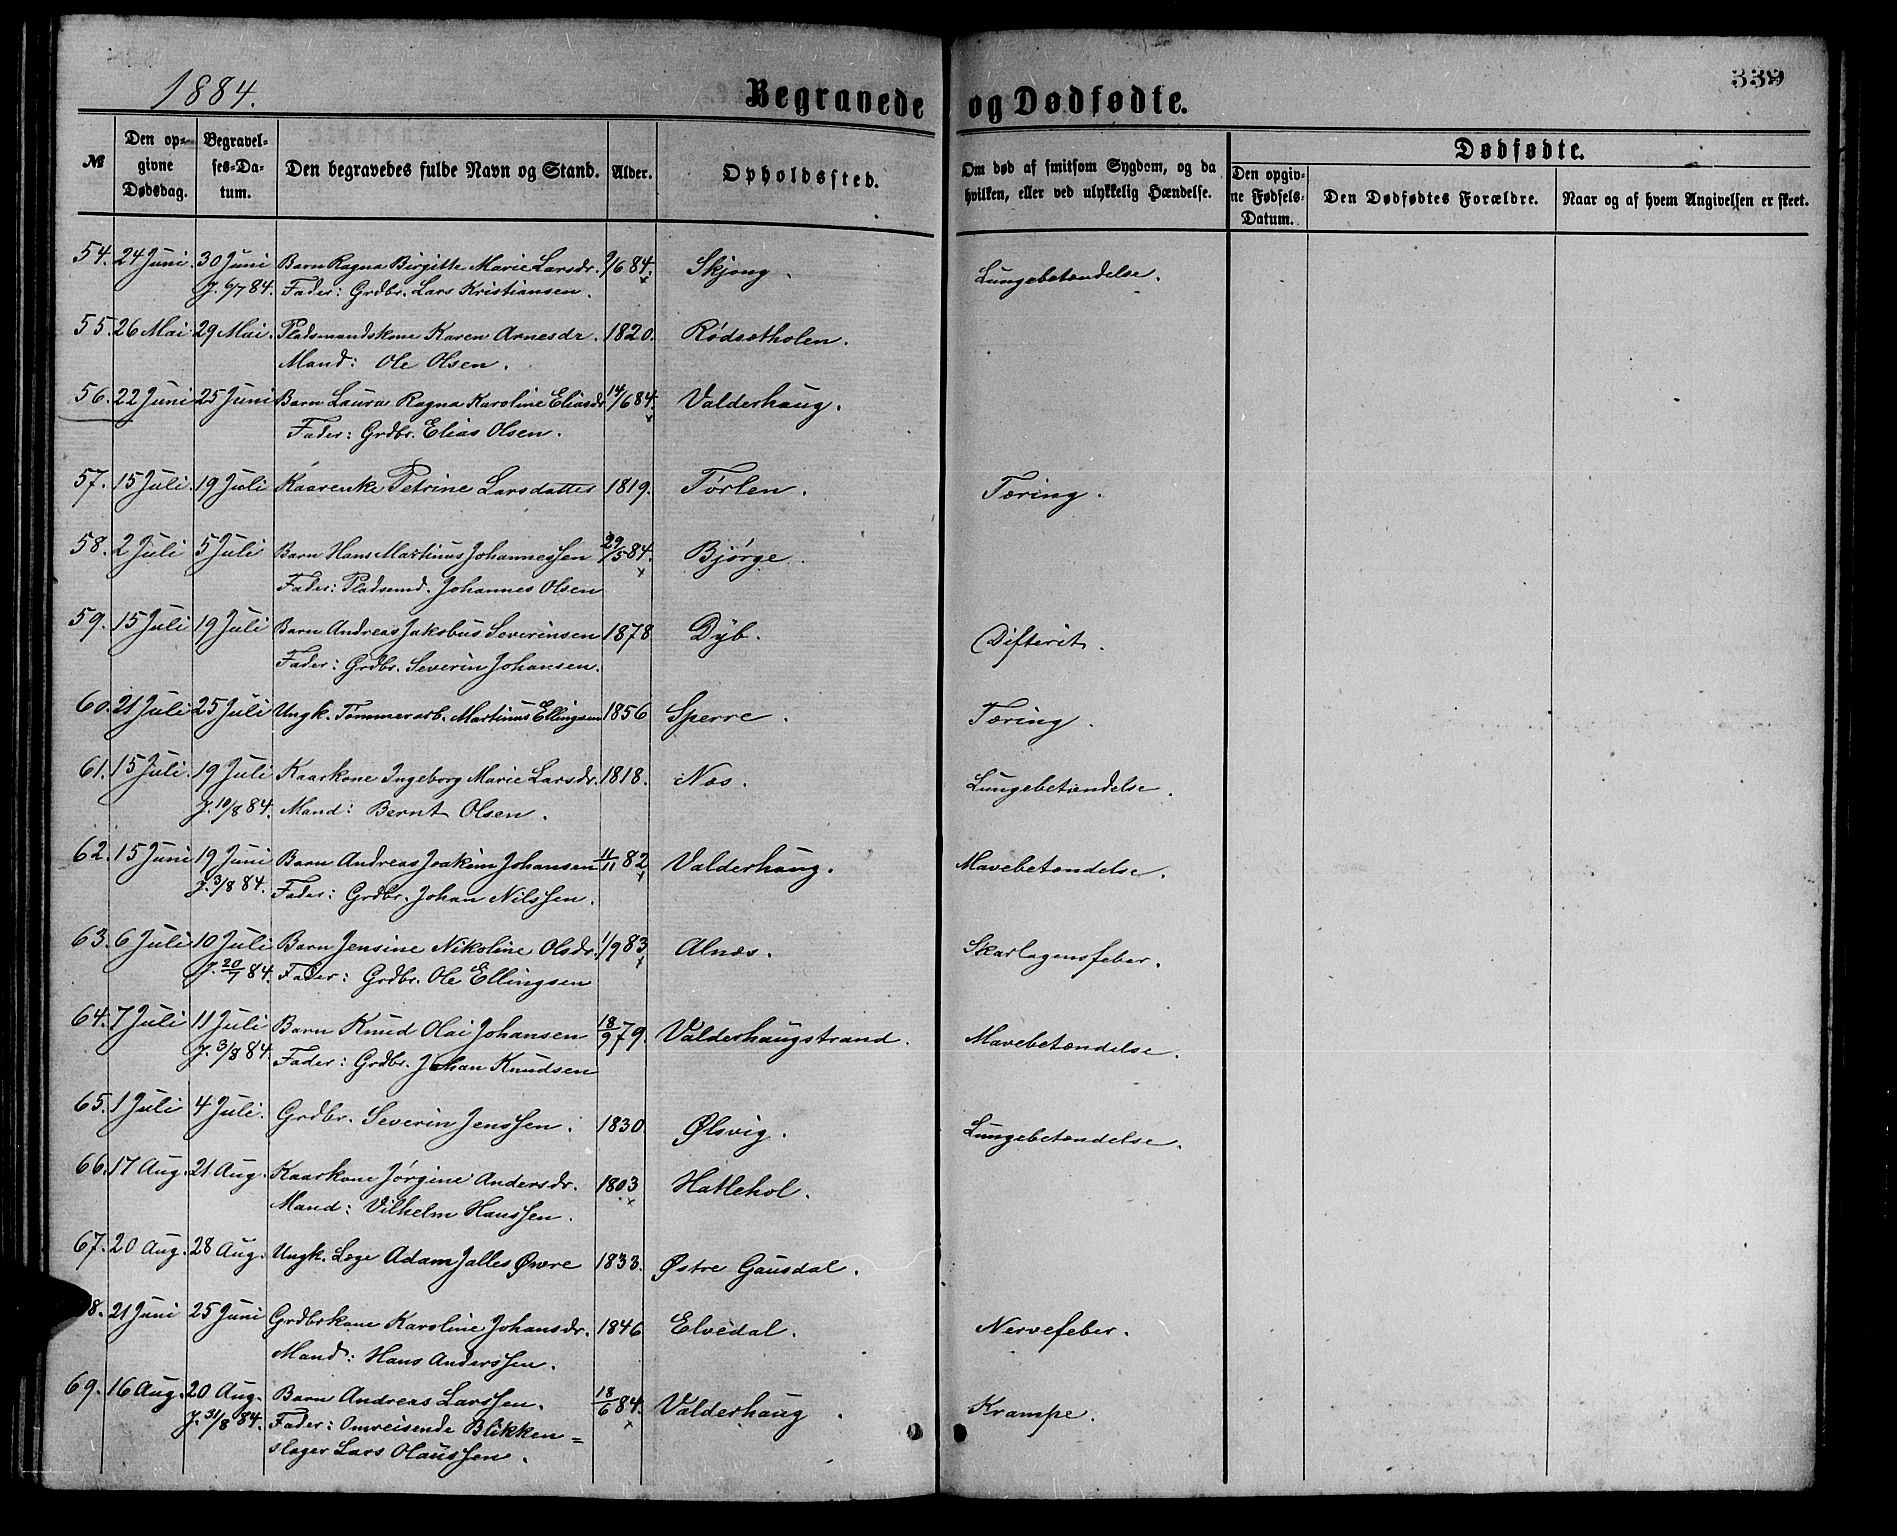 339
1884.
Begravede og Dødfødte.
№
Den opgivne Dødsdag.
Begravelses-Datum.
Den begravedes fulde Navn og Stand.
Alder.
Opholdssted.
Om død af smitsom Sygdom, og da hvilken, eller ved ulykkelig Hændelse.
Dødfødte.
Den opgivne Fødsels-Datum.
Den Dødfødtes Forældre.
Naar og af hvem Angivelsen er skeet.
54. 24 Juni. 30 Juni Barn Ragna Birgitte Marie Larsdr. 9/6 84. Skjong. Lungebetændelse.
J. 6/7 84. Fader: Grdbr. Lars Kristiansen.
55. 26 Mai 29 Mai. Pladsmandskone Karen Arnesdr. 1820. Rødsetholen.
Mand: Ole Olsen.
56. 22 Juni 25 Juni Barn Laura Ragna Karoline Eliasdr 14/6 84. Valderhaug.
Fader: Grdbr. Elias Olsen.
57. 15 Juli. 19 Juli Kaarenke Petrine Larsdatter 1819. Tørlen. Tæring.
58. 2 Juli 5 Juli Barn Hans Martinus Johannessen 29/5 84. Bjørge.
Fader: Pladsmd. Johannes Olsen
59. 15 Juli 19 Juli Barn Andreas Jakobus Severinsen 1878 Dyb. Difterit.
Fader: Grdbr. Severin Johansen.
60. 21 Juli 25 Juli Ungk. Tømmerarb. Martinus Ellingsen 1856 Sperre. Tæring.
61. 15 Juli. 19 Juli Kaarkone Ingeborg Marie Larsdr. 1818. Næs. Lungebetændelse.
J. 10/8 84. Mand: Bernt Olsen.
62. 15 Juni 19 Juni Barn Andreas Joakim Johansen 11/11 82 Valderhaug. Mavebetændelse.
J. 3/8 84. Fader: Grdbr. Johan Nilssen.
63. 6 Juli 10 Juli Barn Jensine Nikoline Olsdr. 1/9 83 Alnæs. Skarlagensfeber.
J. 20/7 84. Fader: Grdbr. Ole Ellingsen
64. 7 Juli 11 Juli Barn Knud Olai Johansen 18/9 79. Valderhaugstrand. Mavebetændelse.
J. 3/8 84. Fader: Grdbr. Johan Knudsen
65. 1 Juli 4 Juli. Grdbr. Severin Jenssen. 1830. Ølsvig. Lungebetændelse.
66. 17 Aug. 21 Aug. Kaarkone Jørgine Andersdr. 1803 Hatlehol.
Mand: Vilhelm Hanssen.
67. 20 Aug. 28 Aug. Ungk. Læge Adam Jalles Øvre 1833. Østre Gausdal.
8. 21 Juni 25 Juni Grdbrkone Karoline Johansdr. 1846 Elvedal. Nervefeber.
Mand: Hans Anderssen.
69. 16 Aug. 20 Aug. Barn Andreas Larssen. 18/6 84. Valderhaug. Krampe.
J. 31/8 84. Fader: Omreisende Blikken=
slager Lars Olaussen.